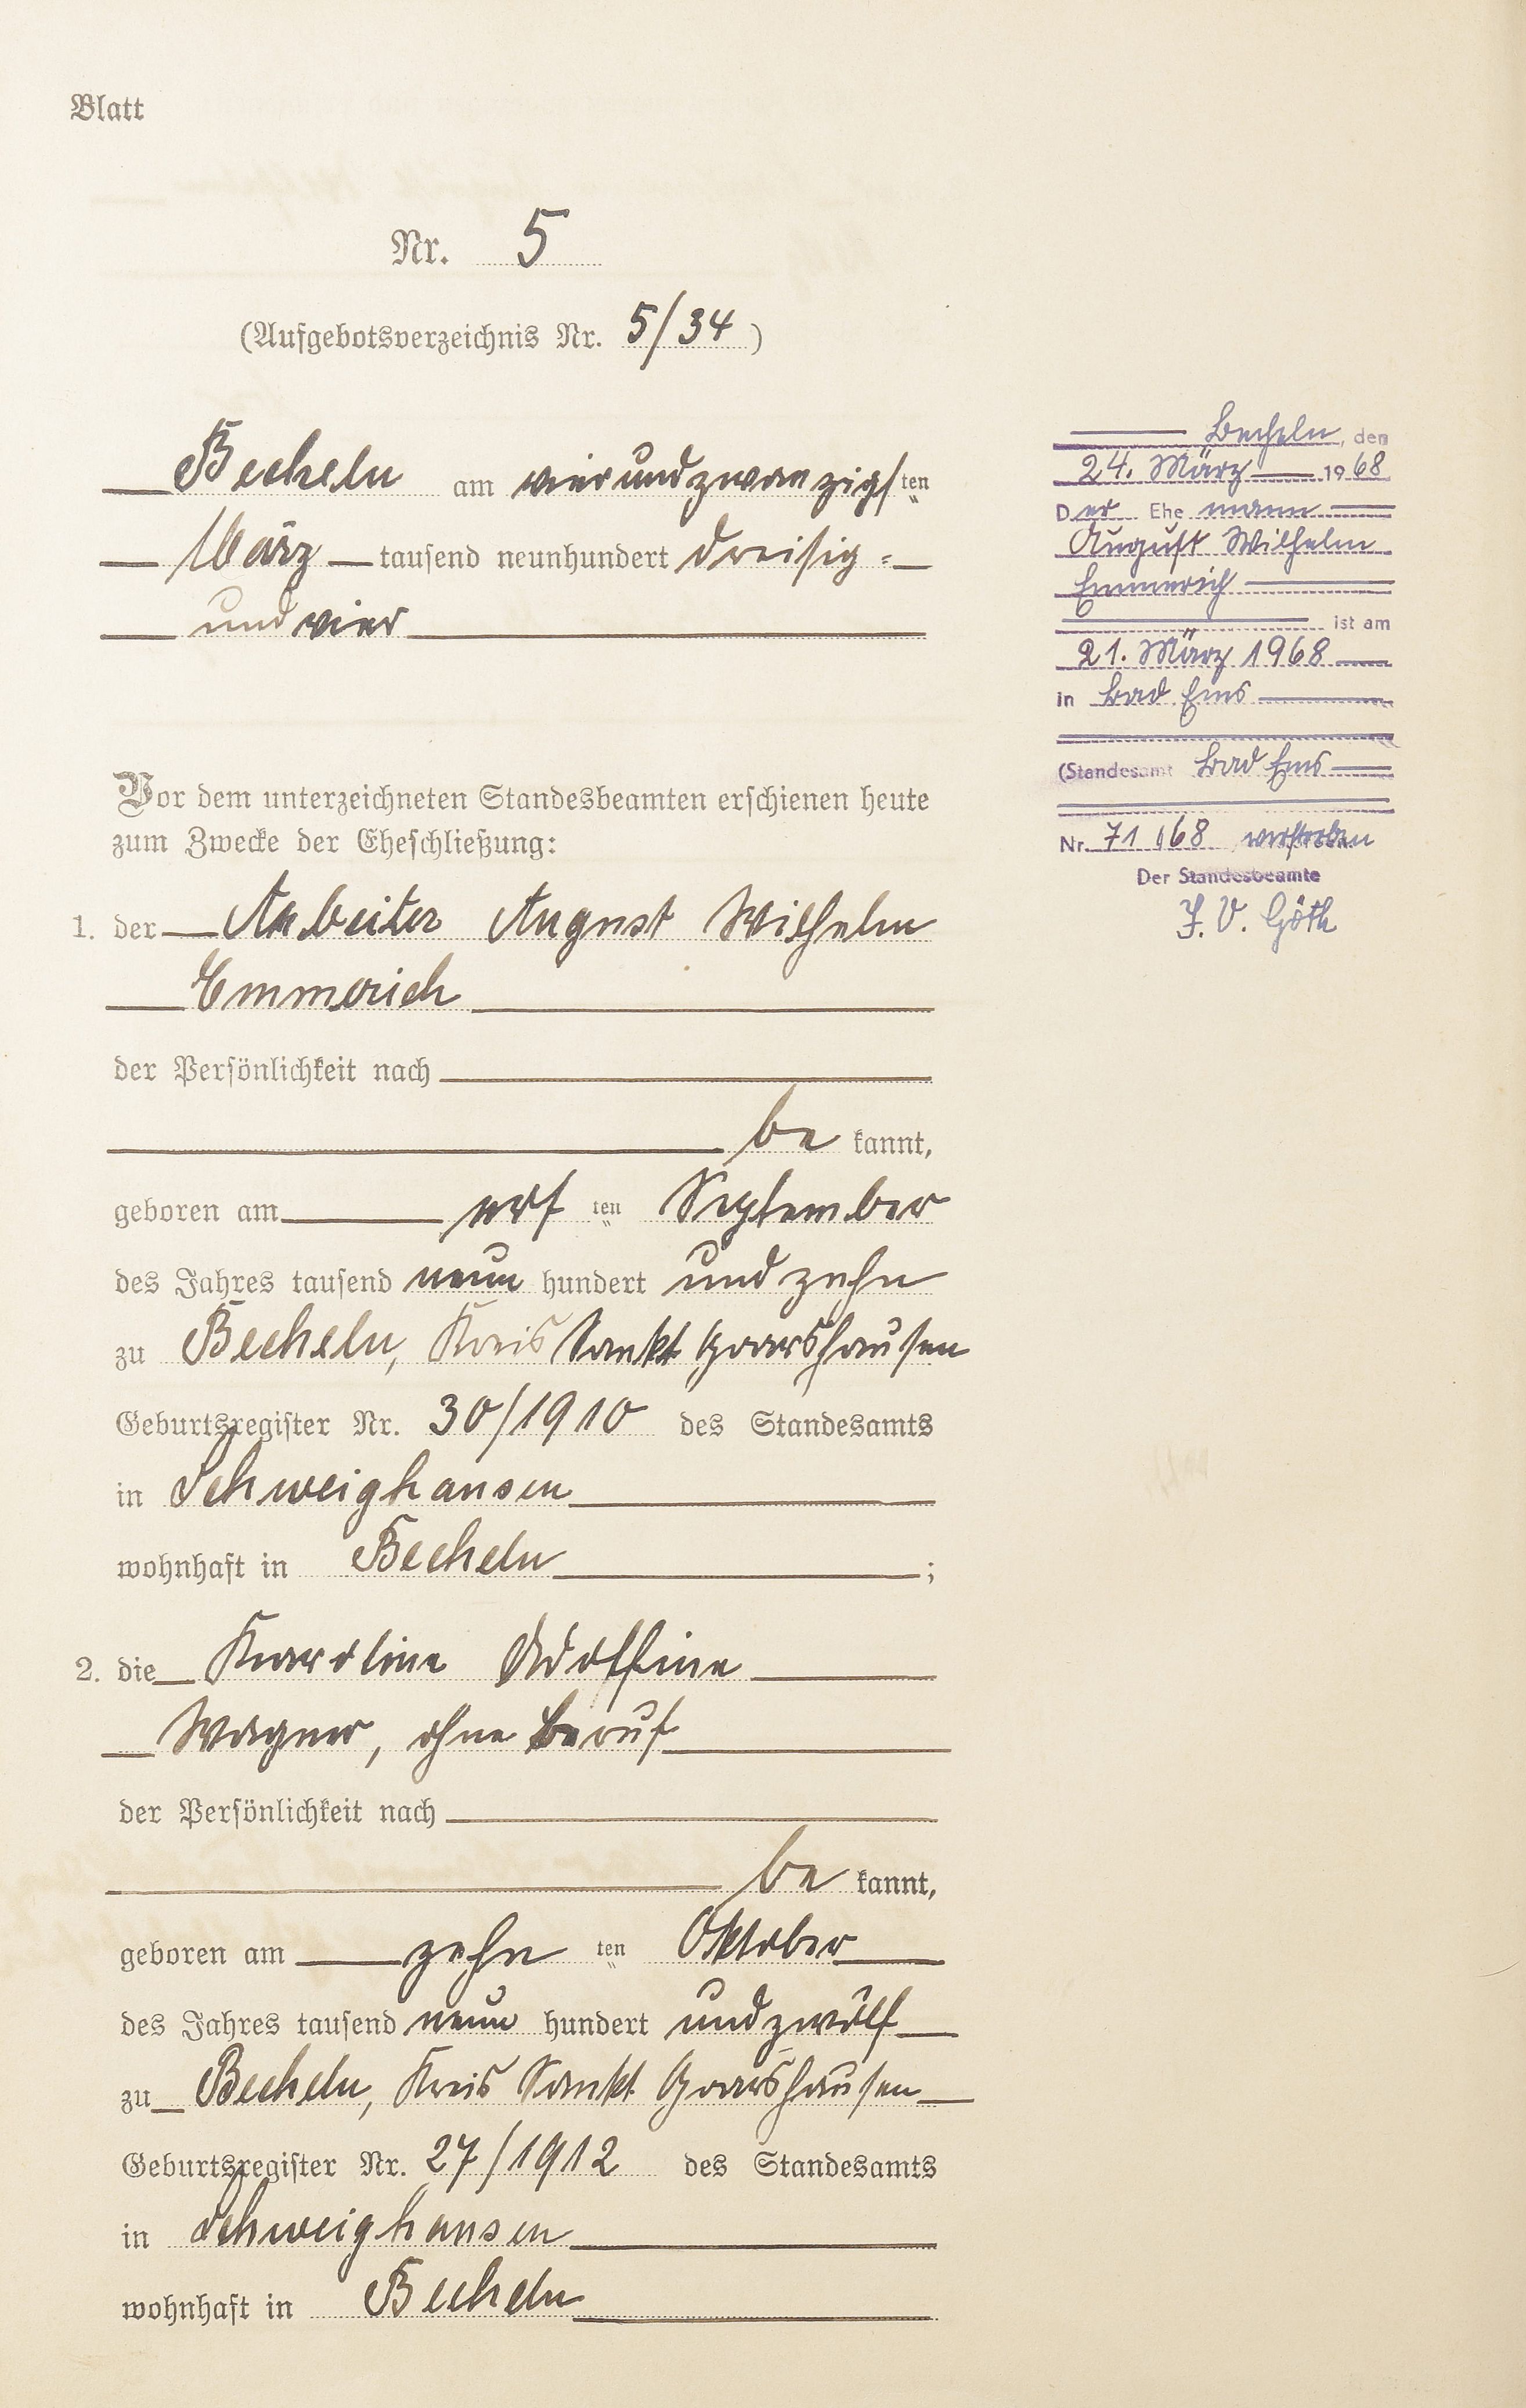 Blatt
Nr. 5
(Aufgebotsverzeichnis Nr. 5/34)
Becheln am vierundzwanzigs ten
März tausend neunhundert dreisig =
und vier
Vor dem unterzeichneten Standesbeamten erschienen heute
zum Zwecke der Eheschließung:
1. der Arbeiter August Wilhelm
Emmerich
der Persönlichkeit nach
be kannt,
geboren am ers ten September
des Jahres tausend neun hundert und zehn
zu Becheln, Kreis Sankt Goarshausen
Geburtsregister Nr. 30/1910 des Standesamts
in Schweighausen
wohnhaft in Becheln ;
2. die Karoline Adolfine
Wagner, ohne Beruf
der Persönlichkeit nach
be kannt,
geboren am zehn ten Oktober
des Jahres tausend neun hundert und zwölf
zu Becheln, Kreis Sankt Goarshausen
Geburtsregister Nr. 27/1912 des Standesamts
in Schweighausen
wohnhaft in Becheln
Becheln, den
24. März 1968
Der Ehe mann
August Wilhelm
Emmerich
ist am
21. März 1968
in Bad Ems
(Standesamt Bad Ems
Nr. 71 /68 verstorben
Der Standesbeamte
I. V. Göth